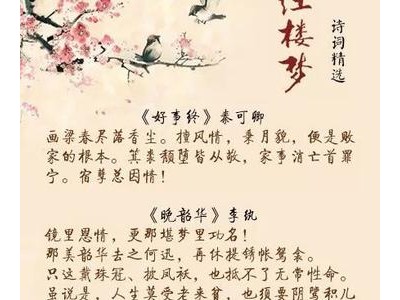 红楼梦
诗词精选
《好事终》秦可卿
画梁春尽落香尘。擅风情，秉月貌，便是败
家的根本。箕裘颓堕皆从敬，家事消亡首罪
宁。宿孽总因情！
《晚韶华》李纨
镜里恩情，更那堪梦里功名！
那美韶华去之何迅，再休提锈帐鸳衾。
只这戴珠冠、披凤袄，也抵不了无常性命。
虽说是，人生莫受老来贫，也须要阴骘积儿